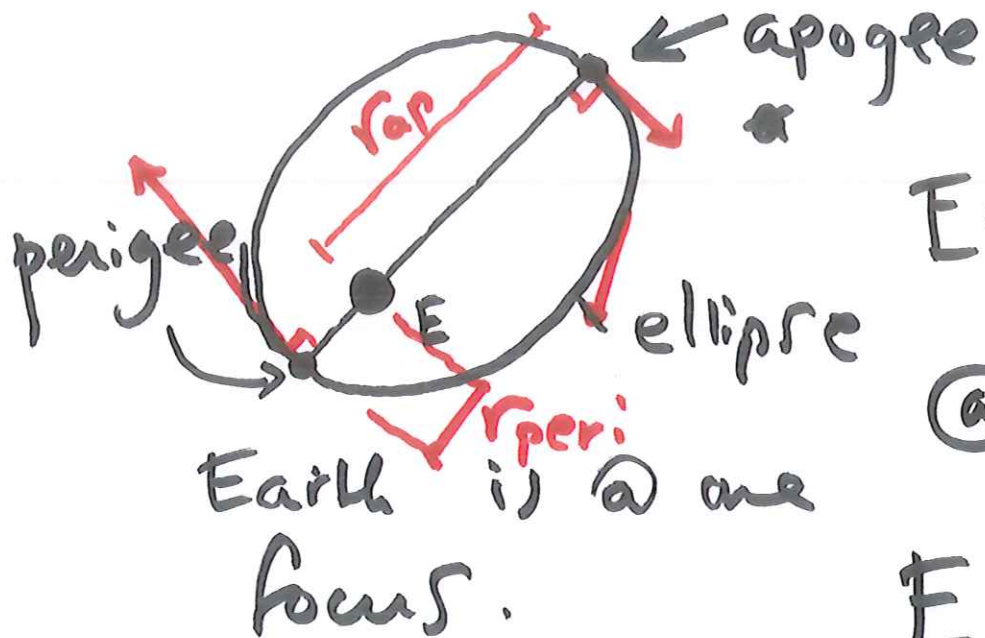 apogee
r_ap
E
perigee
E
ellipse
r_peri
@
Earth is @ one
focus.
E